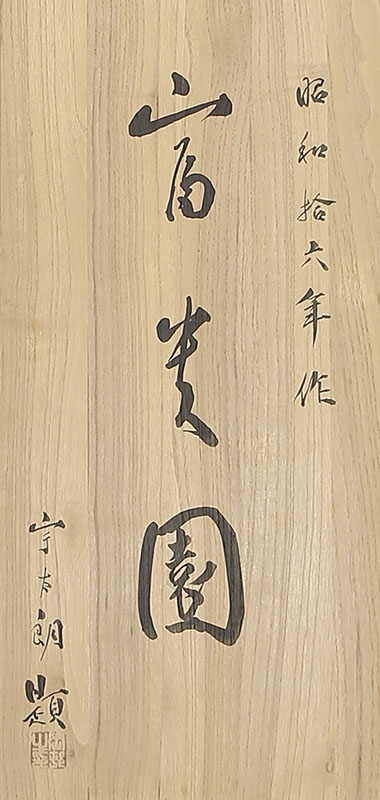 昭和拾六年作
富貴園
宇太朗題